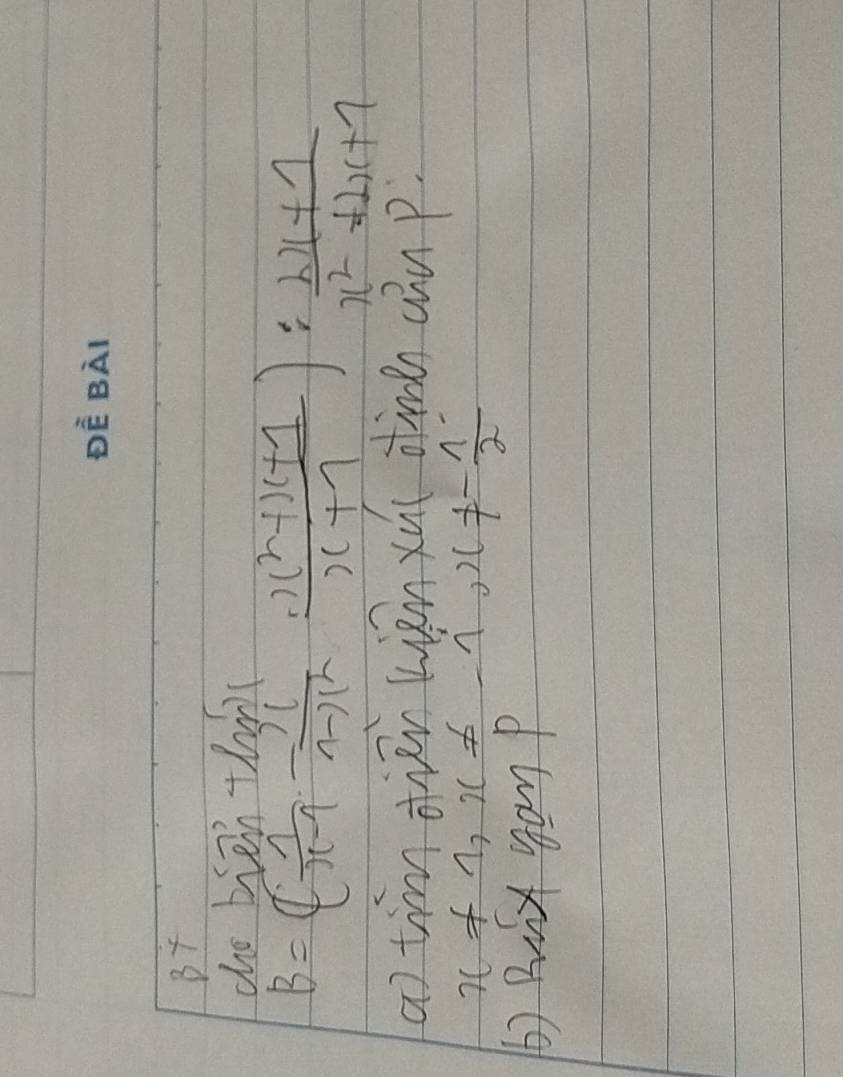 ĐỀ BÀI
BT
cho biểu thức
B = (1/(x-1) - x/(1-x²) · (x²+x+1)/(x+1)) : (2x+1)/(x²+2x+1)
a) tìm điều kiện xác định của P.
x ≠ 1, x ≠ -1, x ≠ -1/2
b) Rút gọn P